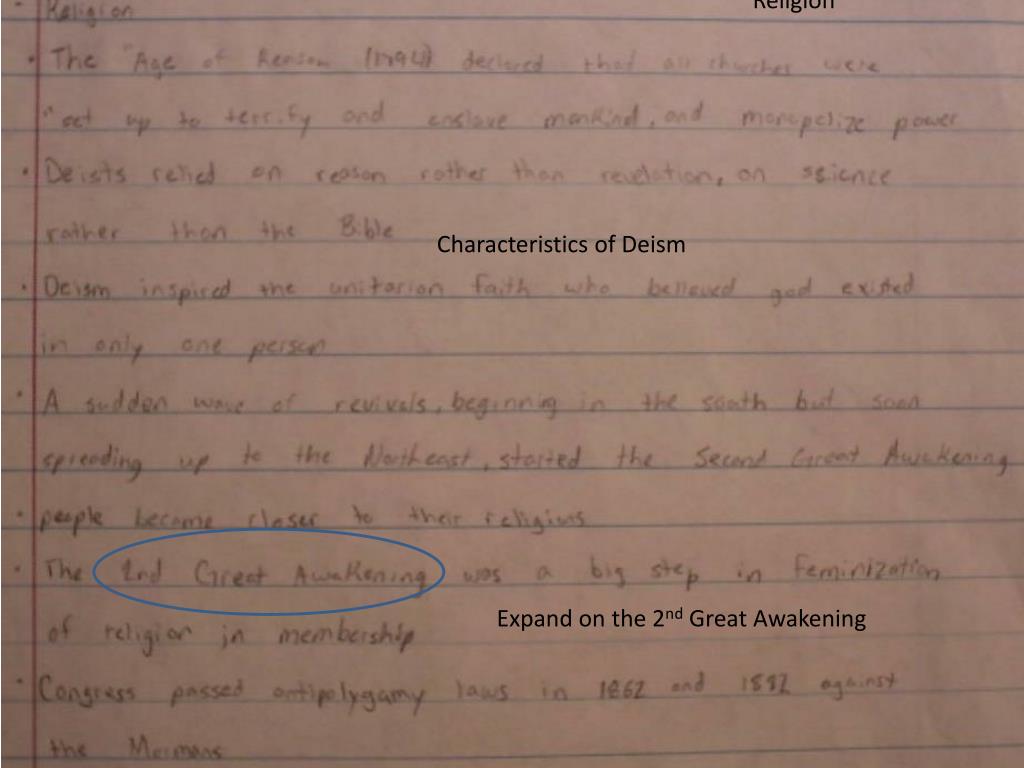 Religion
Religion
• The "Age of Reason (1794) declared that all churches were
"set up to terrify and enslave mankind, and monopolize power
• Deists relied on reason rather than revelation, on science
rather than the Bible
Characteristics of Deism
• Deism inspired the unitarian faith who believed god existed
in only one person
• A sudden wave of revivals, beginning in the south but soon
spreading up to the Northeast, started the Second Great Awakening
• people became closer to their religions
• The 2nd Great Awakening was a big step in feminization
Expand on the 2nd Great Awakening
of religion in membership
• Congress passed antipolygamy laws in 1862 and 1882 against
the Mormans